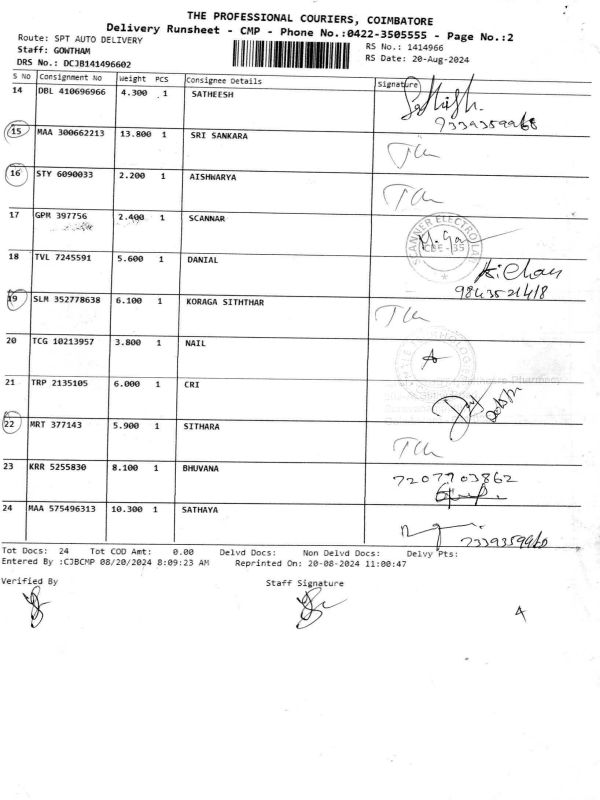 THE PROFESSIONAL COURIERS, COIMBATORE
Delivery Runsheet - CMP - Phone No.:0422-3505555 - Page No.:2
Route: SPT AUTO DELIVERY
RS No.: 1414966
Staff: GOWTHAM
RS Date: 20-Aug-2024
DRS No.: DCJB141496602
S No Consignment No Weight PCS Consignee Details Signature
14 DBL 410696966 4.300 1 SATHEESH
Sathish.
15 MAA 300662213 13.800 1 SRI SANKARA
16 STY 6090033 2.200 1 AISHWARYA
17 GPM 397756 2.400 1 SCANNAR
18 TVL 7245591 5.600 1 DANIAL
19 SLM 352778638 6.100 1 KORAGA SITHTHAR
20 TCG 10213957 3.800 1 NAIL
21 TRP 2135105 6.000 1 CRI
22 MRT 377143 5.900 1 SITHARA
23 KRR 5255830 8.100 1 BHUVANA
7207903862
24 MAA 575496313 10.300 1 SATHAYA
Tot Docs: 24 Tot COD Amt: 0.00 Delvd Docs: Non Delvd Docs: Delvy Pts:
Entered By :CJBCMP 08/20/2024 8:09:23 AM Reprinted On: 20-08-2024 11:00:47
Verified By Staff Signature